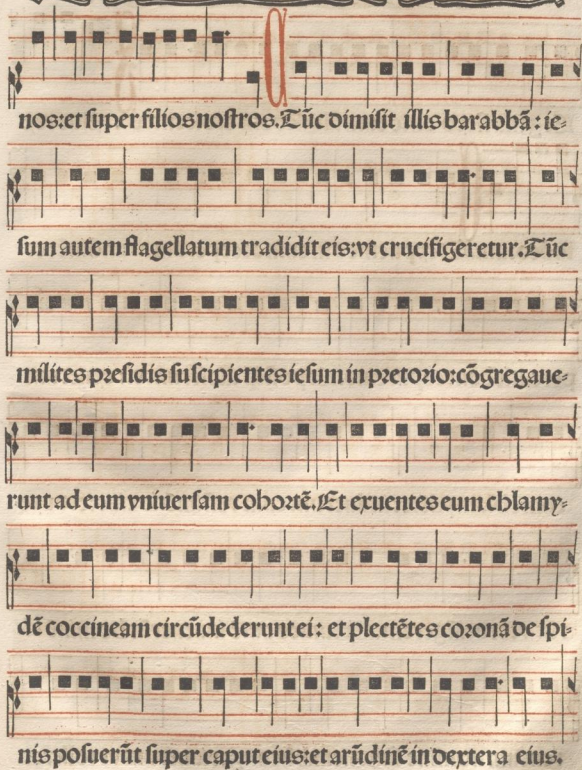 nos:et super filios nostros.Tūc dimisit illis barabbā: ie-
sum autem flagellatum tradidit eis:vt crucifigeretur.Tūc
milites presidis suscipientes iesum in pretorio:cōgregaue-
runt ad eum vniuersam cohortē.Et exuentes eum chlamy-
dē coccineam circūdederunt ei: et plectētes coronā de spi-
nis posuerūt super caput eius:et arūdinē in dextera eius.